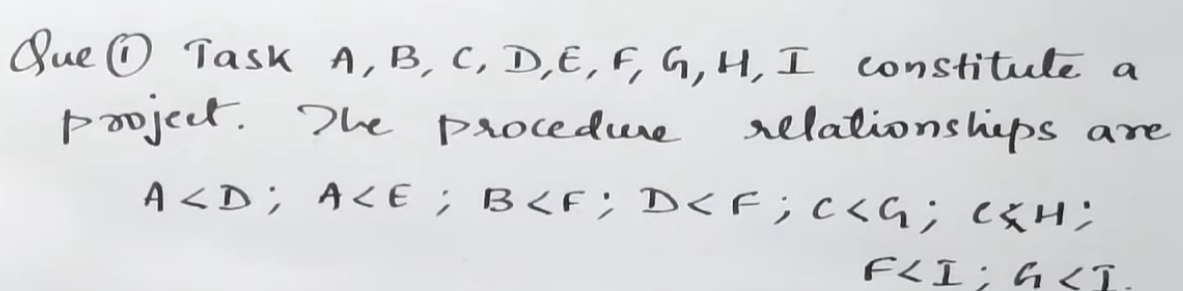 Que ① Task A, B, C, D, E, F, G, H, I constitute a
project. The procedure relationships are
A < D; A < E; B < F; D < F; C < G; C < H;
F < I; G < I.